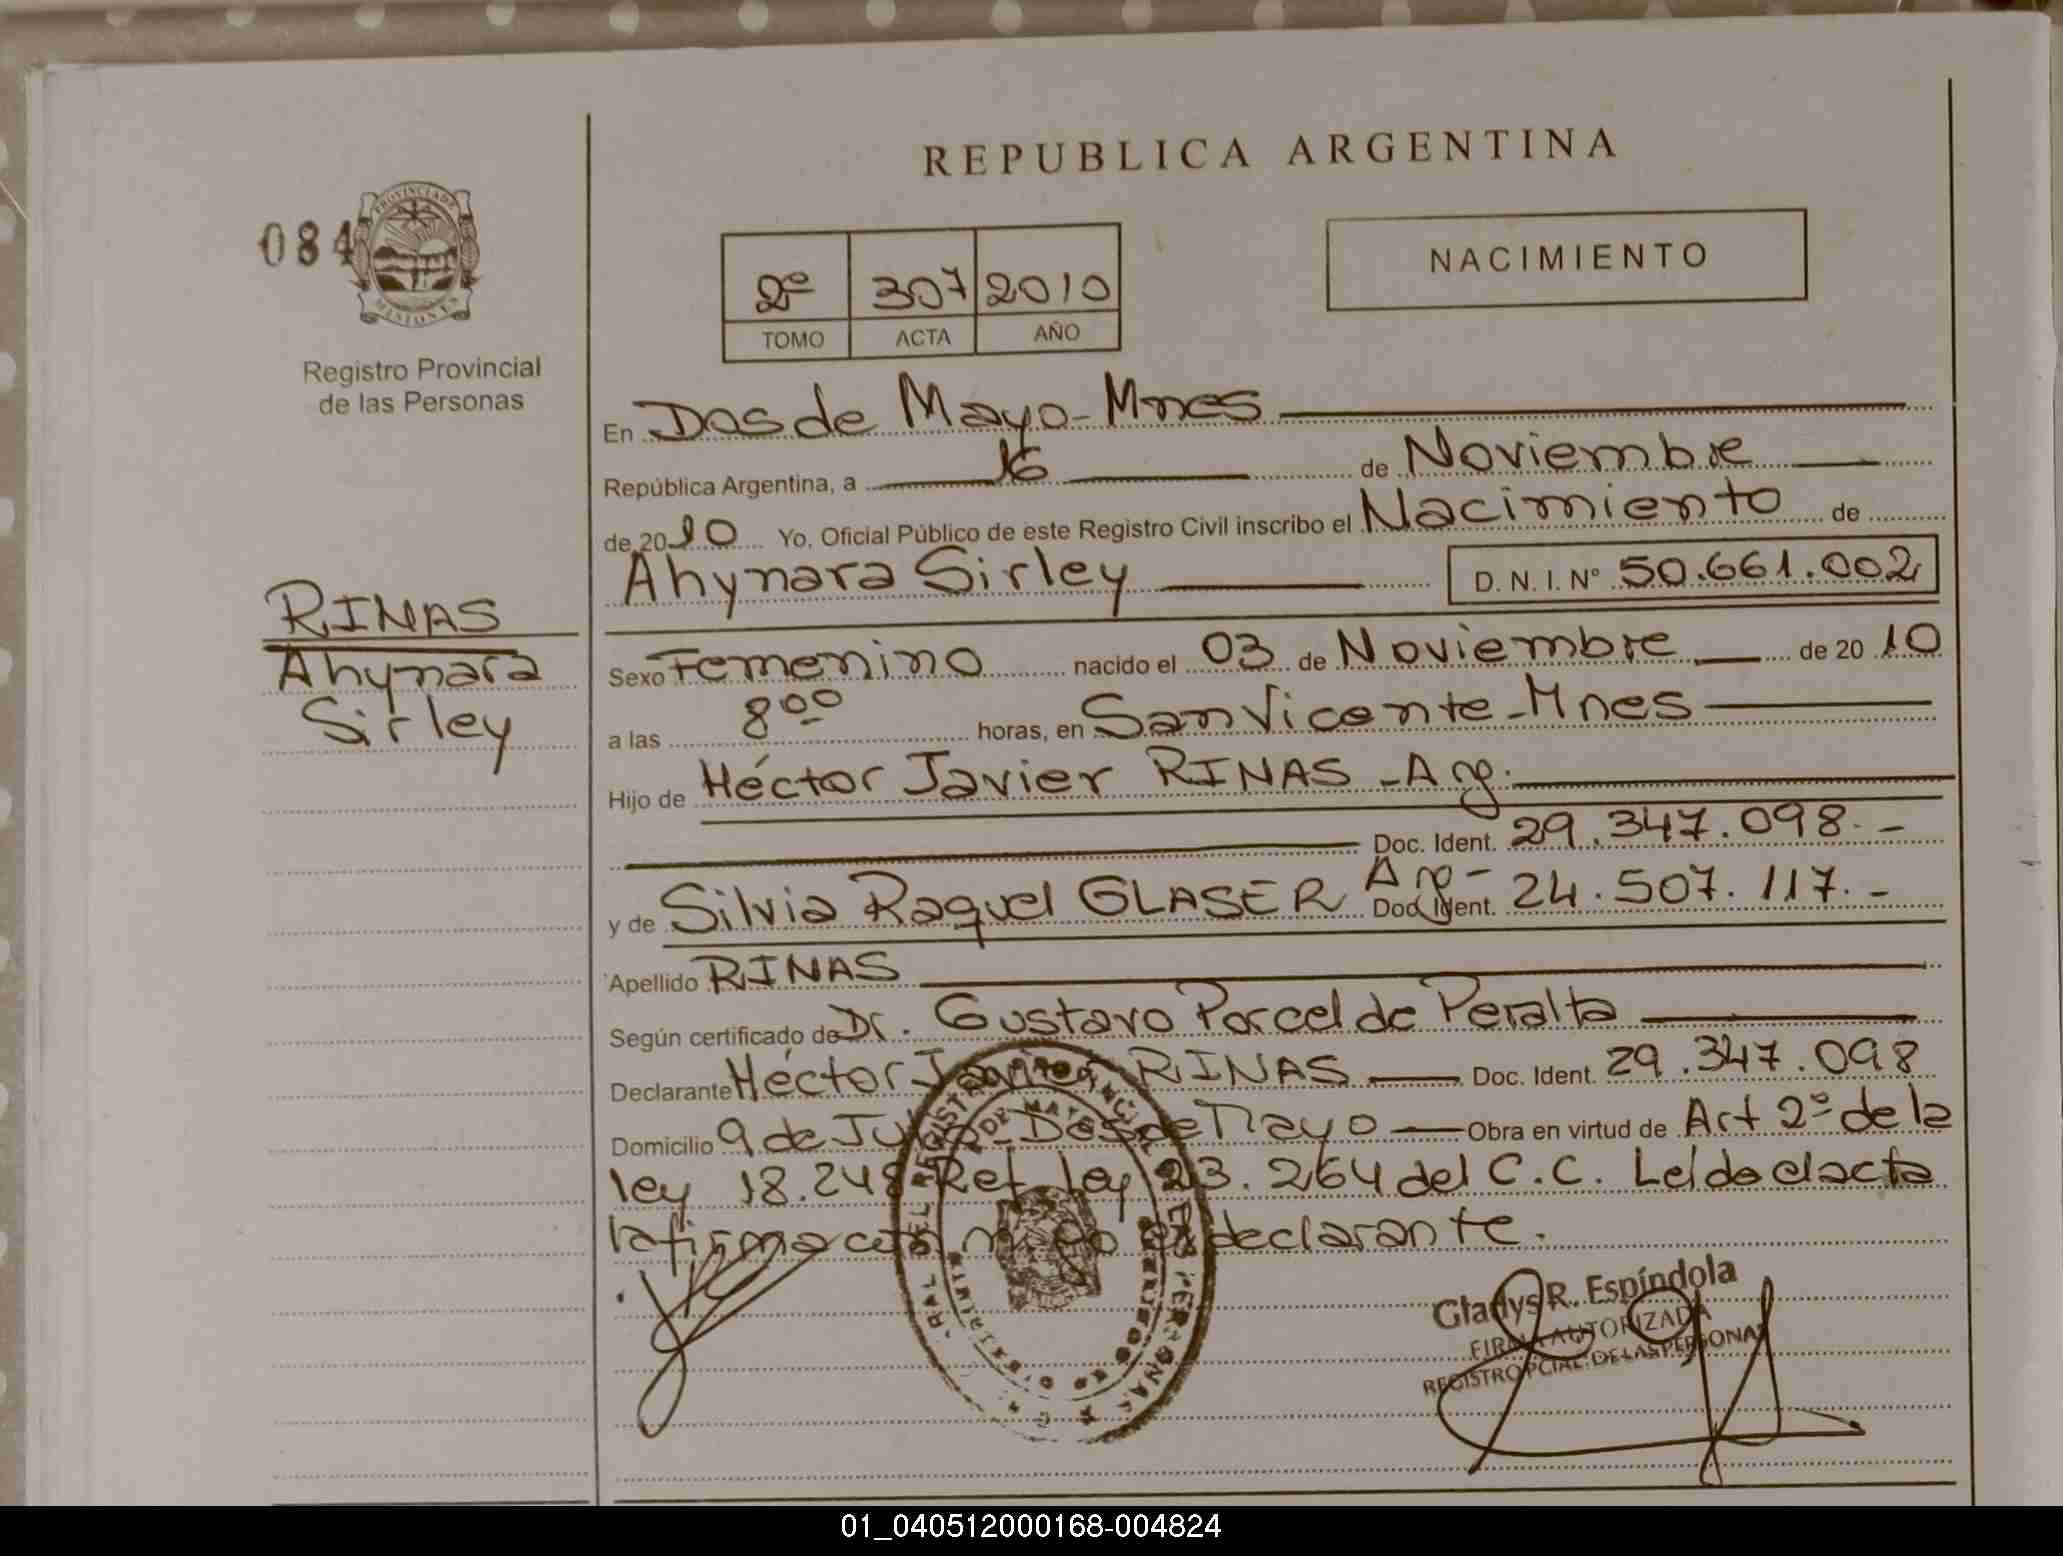 REPUBLICA ARGENTINA
084
PROVINCIA DE
MISIONES
Registro Provincial
de las Personas
2º 307 2010
TOMO ACTA AÑO
NACIMIENTO
En Dos de Mayo-Mnes
República Argentina, a 16 de Noviembre
de 2010 Yo, Oficial Público de este Registro Civil inscribo el Nacimiento de
Ahynara Sirley D. N. I. Nº 50.661.002
RINAS
Ahynara
Sirley
Sexo Femenino nacido el 03 de Noviembre de 2010
a las 8⁰⁰ horas, en San Vicente-Mnes
Hijo de Héctor Javier RINAS - Arg.
Doc. Ident. 29.347.098.-
y de Silvia Raquel GLASER Arg- Doc. Ident. 24.507.117.-
Apellido RINAS
Según certificado de Dr. Gustavo Porcel de Peralta
Declarante Héctor Javier RINAS Doc. Ident. 29.347.098
Domicilio 9 de Julio - Dos de Mayo Obra en virtud de Art 2º de la
ley 18.248 Ref ley 23.264 del C.C. Leída el acta
la firma con migo el declarante.
Gladys R. Espíndola
FIRMA AUTORIZADA
REGISTRO PCIAL. DE LAS PERSONAS
01_040512000168-004824